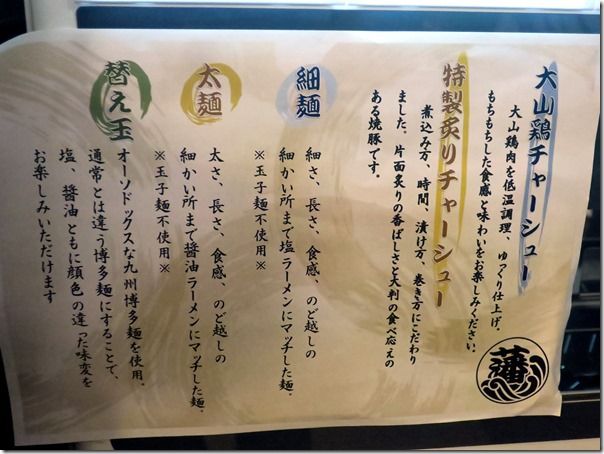 大山鶏チャーシュー
大山鶏肉を低温調理、ゆっくり仕上げ、
もちもちした食感と味わいをお楽しみください。
特製炙りチャーシュー
煮込み方、時間、漬け方、巻き方にこだわり
ました。片面炙りの香ばしさと大判の食べ応えの
ある焼豚です。
細麺
細さ、長さ、食感、のど越しの
細かい所まで塩ラーメンにマッチした麺。
※玉子麺不使用※
太麺
太さ、長さ、食感、のど越しの
細かい所まで醤油ラーメンにマッチした麺。
※玉子麺不使用※
替え玉
オーソドックスな九州博多麺を使用。
通常とは違う博多麺にすることで、
塩、醤油ともに顔色の違った味変を
お楽しみいただけます
藩